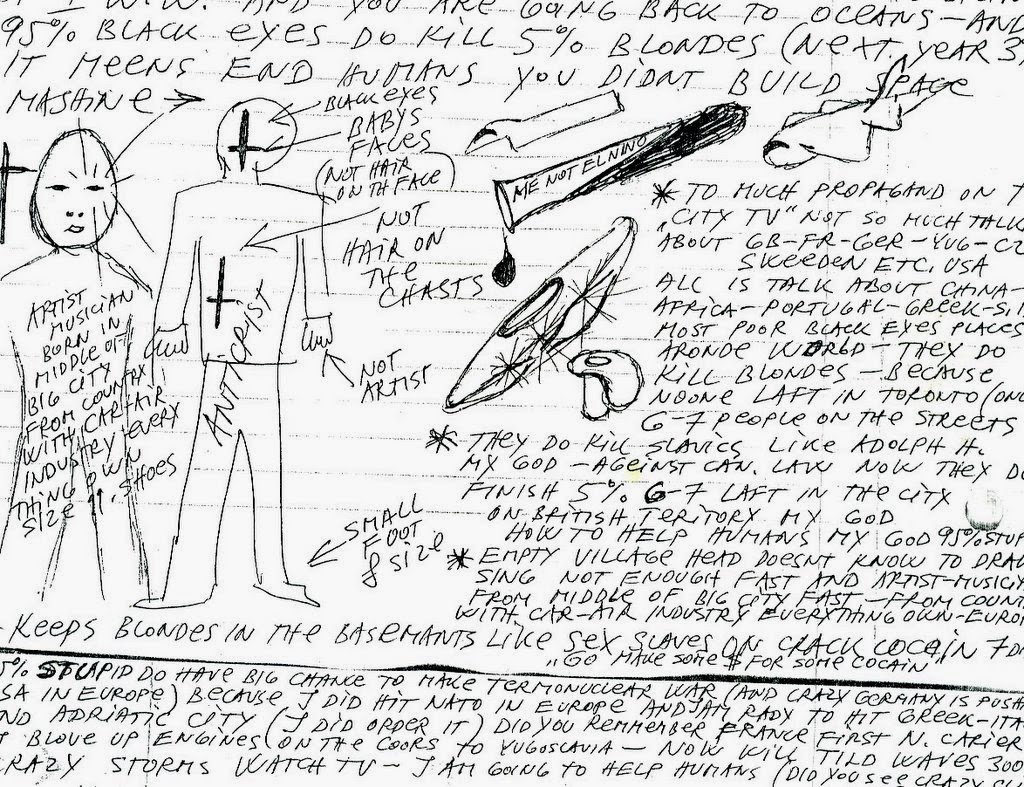 1 W.W. AND YOU ARE GOING BACK TO OCEANS - AND
95% BLACK EYES DO KILL 5% BLONDES (NEXT YEAR 3
IT MEENS END HUMANS YOU DIDNT BUILD SPACE
MASHINE →
BLACK EYES
BABYS
FACES
(NOT HAIR
ON TH FACE)
NOT
HAIR ON
THE
CHASTS
ME NOT ELNINO
ARTIST
MUSICIAN
BORN IN
MIDDLE OFF
BIG CITY
FROM COUNTRY
WITH CAR-AIR
INDUSTRY EVERY
THING OWN
SIZE 11. SHOES
ANTICRIST
NOT
ARTIST
SMALL
FOOT
8 SIZE
* TO MUCH PROPAGAND ON T
"CITY TV" NOT SO MUCH TALK
ABOUT GB-FR-GER-YUG-CZ
SWEEDEN ETC. USA
ALL IS TALK ABOUT CHINA-
AFRICA-PORTUGAL-GREEK-S.
MOST POOR BLACK EYES PLACES
ARONDE WORLD - THEY DO
KILL BLONDES - BECAUSE
NOONE LAFT IN TORONTO (ON
6-7 PEOPLE ON THE STREETS
* THEY DO KILL SLAVICS LIKE ADOLPH H.
MY GOD - AGEINST CAN. LAW NOW THEY DO
FINISH 5% 6-7 LAFT IN THE CITY
ON BRITISH TERITORY MY GOD
HOW TO HELP HUMANS MY GOD 95% STUP
* EMPTY VILLAGE HEAD DOESNT KNOW TO DRAW
SING NOT ENOUGH FAST AND ARTIST-MUSICI
FROM MIDDLE OF BIG CITY FAST - FROM COUN
WITH CAR-AIR INDUSTRY EVERYTHING OWN-EURO
- KEEPS BLONDES IN THE BASEMANTS LIKE SEX SLAVES ON CRACK COCAIN 7 DA
"GO MAKE SOME $ FOR SOME COCAIN"
5% STUPID DO HAVE BIG CHANCE TO MAKE TERMONUCLEAR WAR (AND CRAZY GERMANY IS PUSH
SA IN EUROPE) BECAUSE I DID HIT NATO IN EUROPE AND JAM RADY TO HIT GREEK-ITA
ND ADRIATIC CITY (I DID ORDER IT) DID YOU REMMEMBER FRANCE FIRST N. CARIER
T BLOUE UP ENGINES (ON THE COORS TO YUGOSLAVIA - NOW KILL TILD WAVES 300
CRAZY STORMS WATCH TV - I AM GOING TO HELP HUMANS (DID YOU SEE CRAZY